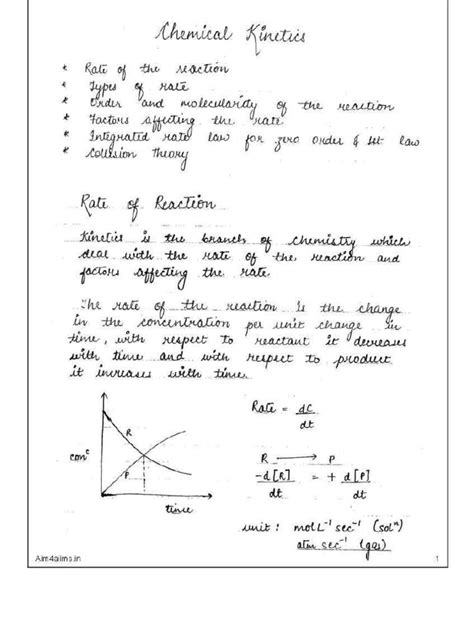 Chemical Kinetics
* Rate of the reaction
* Types of rate
* Order and molecularity of the reaction
* Factors affecting the rate
* Integrated rate law for zero order & Ist law
* Collision theory
Rate of Reaction
Kinetics is the branch of chemistry which
deal with the rate of the reaction and
factors affecting the rate
The rate of the reaction is the change
in the concentration per unit change in
time, with respect to reactant it decreases
with time and with respect to product
it increases with time.
Rate = dC
dt
R
P
conᶜ
time
R ⟶ P
-d[R] = + d[P]
dt dt
unit: mol L⁻¹ sec⁻¹ (solⁿ)
atm sec⁻¹ (gas)
Aim4aiims.in
1